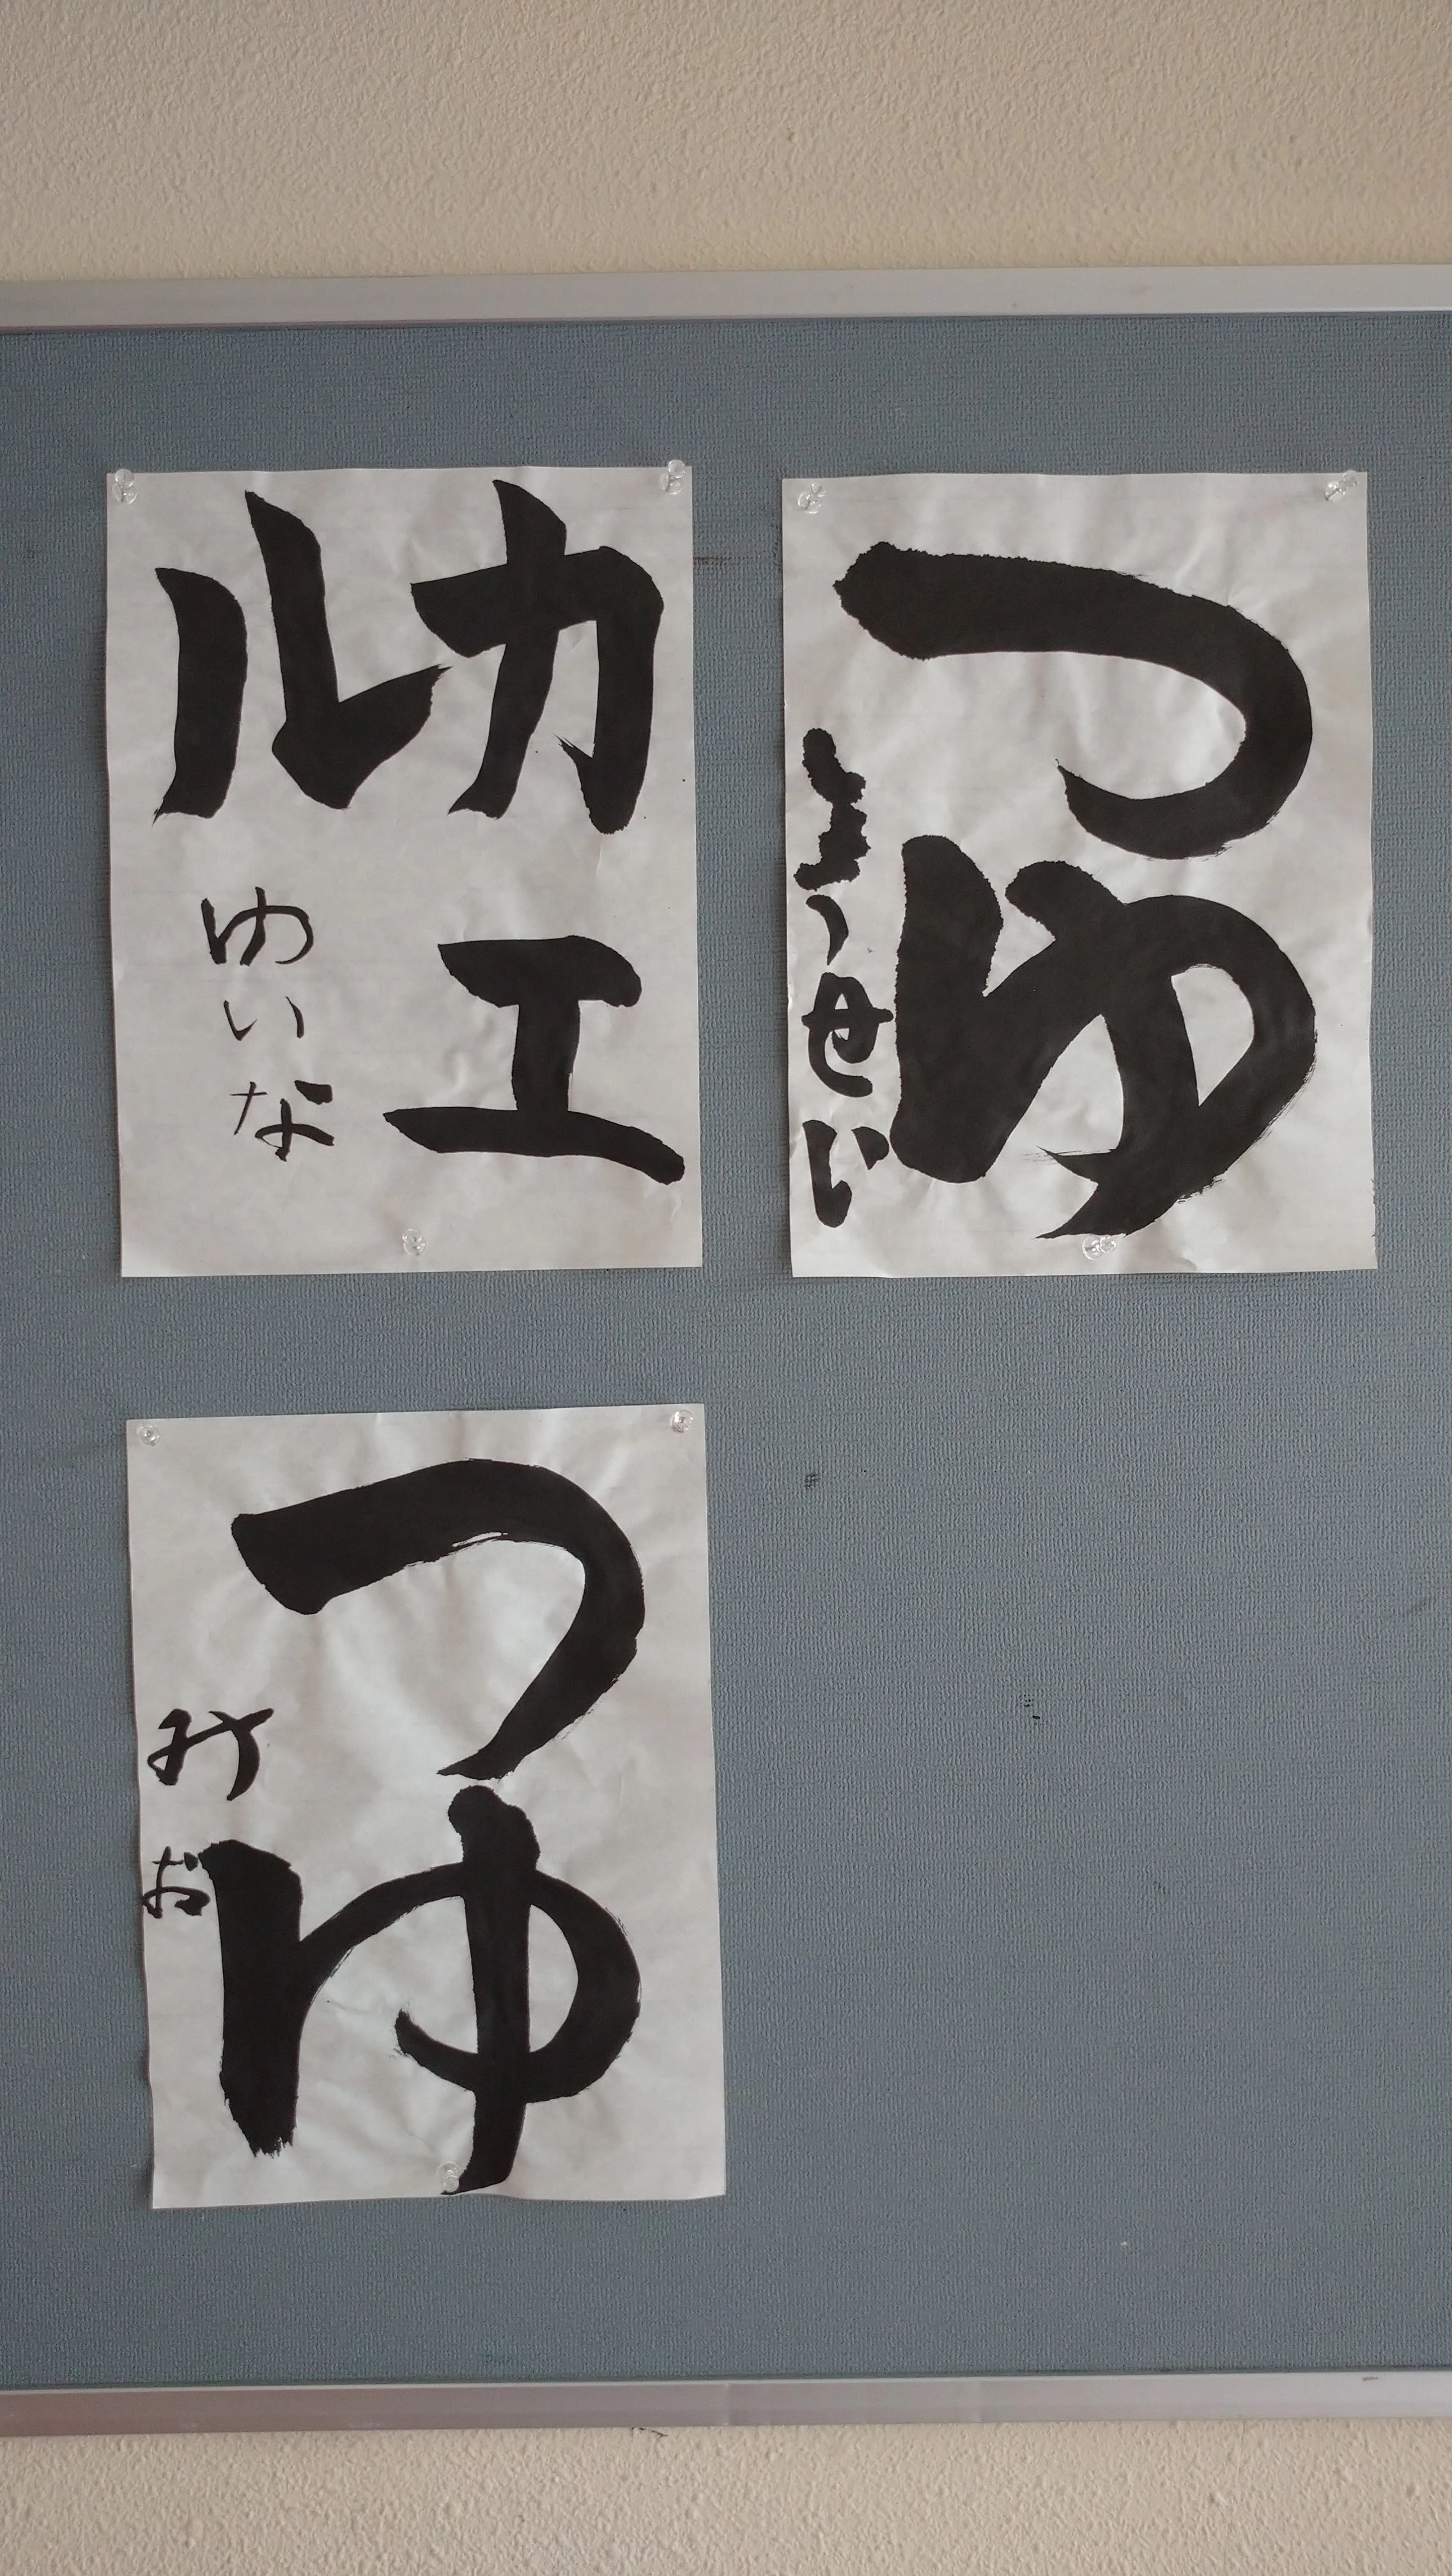 つゆ
せい
カエ
ル
ゆいな
つゆ
みお